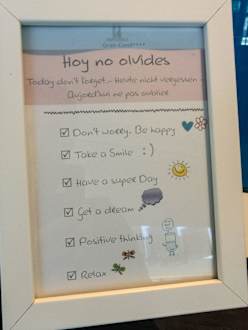 Hoy no olvides
Today don't forget - Heute nicht vergessen -
Aujourd'hui ne pas oublier
Don't worry. Be happy
Take a Smile :)
Have a super Day
Get a dream
Positive thinking
Relax